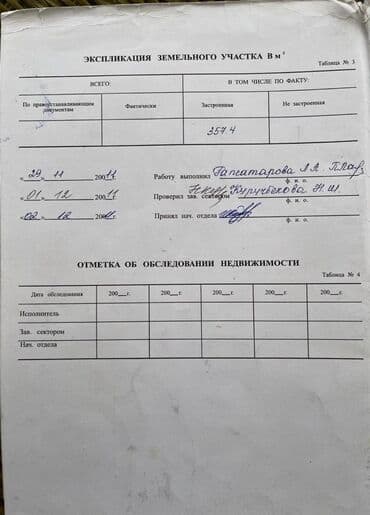 ЭКСПЛИКАЦИЯ ЗЕМЕЛЬНОГО УЧАСТКА В м²
Таблица № 3
ВСЕГО: В ТОМ ЧИСЛЕ ПО ФАКТУ:
По правоустанавливающим документам Фактически Застроенная Не застроенная
357.4
„29" 11 20011 г. Работу выполнил
ф. и. о.
„01" 12 20011 Проверил зав. сектором
ф. и. о.
„02" 12 200 г. Принял нач. отдела
ф. и. о.
ОТМЕТКА ОБ ОБСЛЕДОВАНИИ НЕДВИЖИМОСТИ
Таблица № 4
Дата обследования 200__г. 200__г. 200__г. 200__г. 200__г.
Исполнитель
Зав. сектором
Нач. отдела